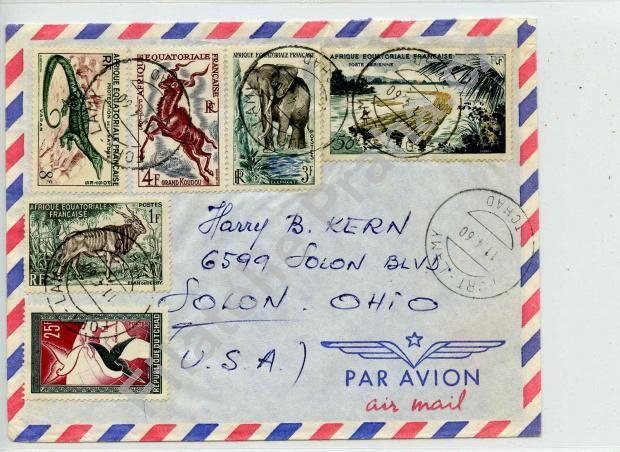 AFRIQUE EQUATORIALE FRANÇAISE
RF
8F
AFRIQUE EQUATORIALE FRANÇAISE
RF
4F GRAND KOUDOU
AFRIQUE EQUATORIALE FRANÇAISE
RF
3F
ELEPHANT
AFRIQUE EQUATORIALE FRANÇAISE
POSTE AERIENNE
RF
50F
AFRIQUE EQUATORIALE FRANÇAISE
POSTES
1F
RF
ELAN DE DERBY
25F
POSTES
REPUBLIQUE DU TCHAD
FORT-LAMY
TCHAD
Harry B. KERN
6599 SOLON BLVD.
SOLON. OHIO
U.S.A.)
PAR AVION
air mail